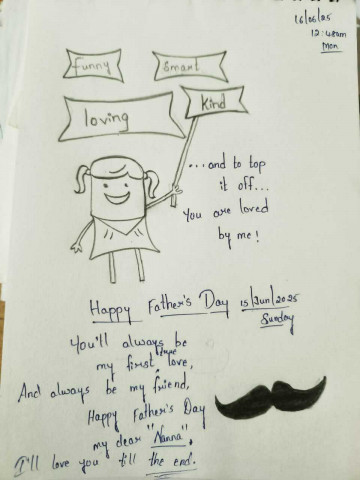 16/06/25
12:48am
Mon
funny
smart
loving
kind
...and to top
it off...
you are loved
by me!
Happy Father's Day 15/Jun/2025
Sunday
You'll always be
my first true love,
And always be my friend,
Happy Father's Day
my dear "Nanna",
I'll love you till the end.